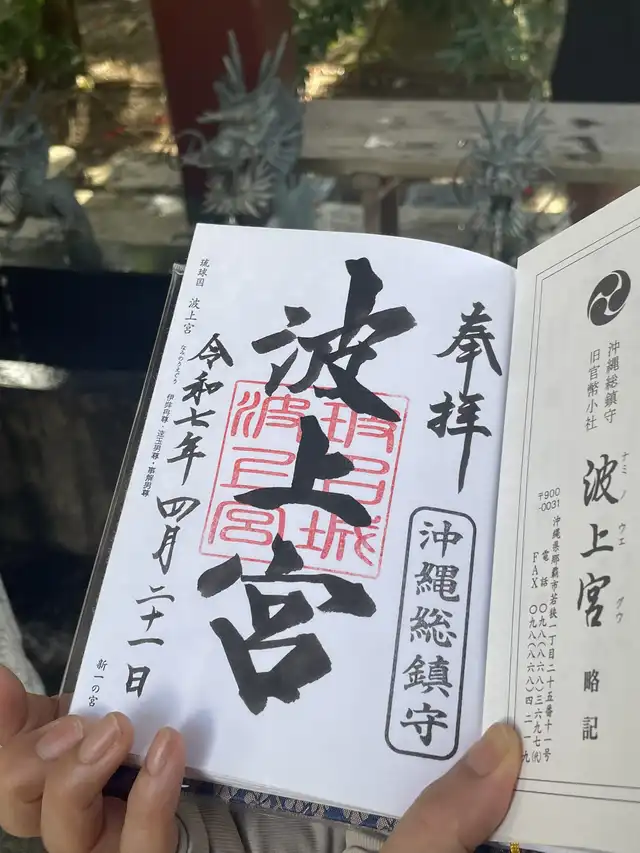 沖縄総鎮守
旧官幣小社
波上宮 略記
ナミノウエグウ
〒900-0031
沖縄県那覇市若狭一丁目二十五番十一号
電話 〇九八(八六八)三六九七(代)
FAX 〇九八(八六八)四二一九
奉拝
沖縄総鎮守
波上宮
波上宮
令和七年 四月二十一日
琉球国 波上宮
なみのうえぐう
伊弉冉尊・速玉男尊・事解男尊
新一の宮